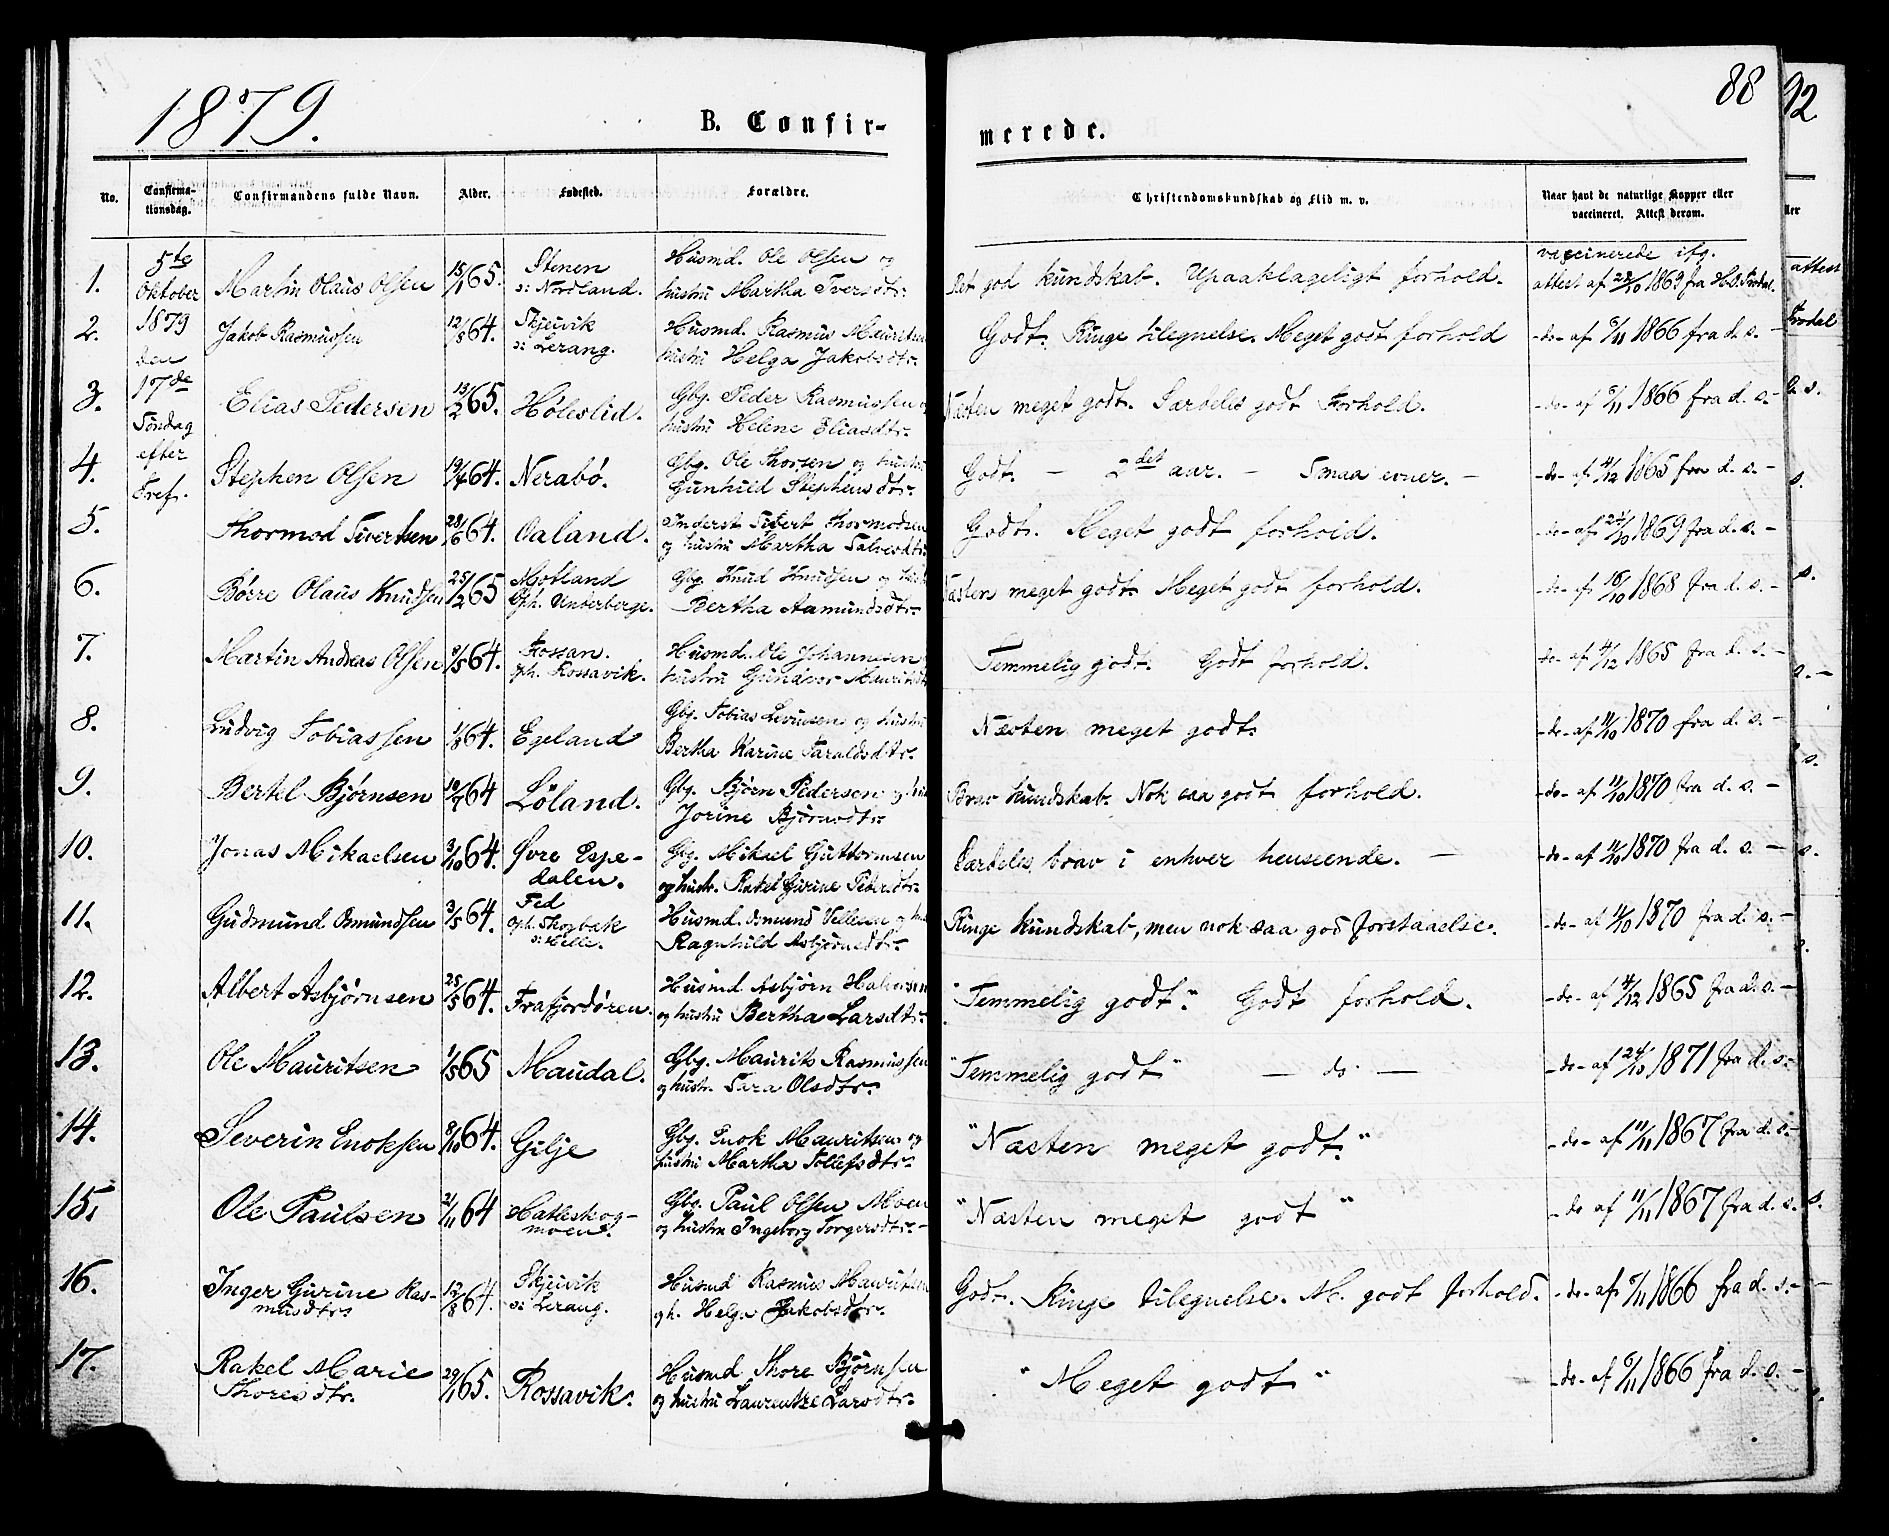 1879.
B. Confir-
merede.
88
92
No.
Confirma-
tionsdag.
Confirmandens fulde Navn.
Alder.
Fødested.
Forældre.
Christendomskundskab og Flid m. v.
Naar havt de naturlige Kopper eller
vaccineret. Attest derom.
5te
Oktober
1879
den
17de
Søndag
efter
Tref.
1. Martin Olaus Olsen 15/1 65. Stenen
o: Nordland. Husmd. Ole Olsen og
hustru Martha Iversdtr. Det god kundskab. Upaaklageligt forhold. vaccinerede ifg.
attest af 23/10 1869 fra H.D. Frodal.
2. Jakob Rasmussen 12/8 64. Skjeivik
o: Lerang. Husmd. Rasmus Mauritsen
hustru Helga Jakobsdtr. Godt. Ringe tilegnelse. Meget godt forhold -do- af 6/11 1866 fra d. s. -
3. Elias Pedersen 13/2 65. Høleslid. Gbg. Peder Rasmussen og
hustru Helene Eliasdtr. Næsten meget godt. Særdeles godt Forhold. -do- af 6/11 1866 fra d. s. -
4. Stephen Olsen 19/4 64. Nerabø. Gbg. Ole Thorsen og hustru
Gunhild Stephensdtr. Godt. - 2det aar. - Smaa evner. - -do- af 4/12 1865 fra d. s. -
5. Thormod Sivertsen 28/6 64. Oaland. Inderst Sivert Thormodsen
og hustru Martha Salvesdtr. Godt. Meget godt forhold. -do- af 24/10 1869 fra d. s. -
6. Børre Olaus Knudsen 25/2 65 Motland
Oph. Underberge. Gbg. Knud Knudsen og hustru
Bertha Aamundsdtr. Næsten meget godt. Meget godt forhold. -do- af 18/10 1868 fra d. s. -
7. Martin Andreas Olsen 9/5 64. Fossan.
Oph. Rossavik. Husmd. Ole Johannesen
hustru Gundvor Mauritsdtr. Temmelig godt. Godt forhold. -do- af 4/12 1865 fra d. s. -
8. Ludvig Tobiassen 1/8 64. Egeland Gbg. Tobias Levinsen og hustru
Bertha Karine Taraldsdtr. Næsten meget godt. -do- af 11/10 1870 fra d. s. -
9. Bertel Bjørnsen 19/7 64 Löland. Gbg. Björn Pedersen og
Jorine Björnsdtr. Brav kundskab. Nok saa godt forhold. -do- af 11/10 1870 fra d. s. -
10. Jonas Mikaelsen 3/10 64. Øvre Espe-
dalen. Gbg. Mikael Guttormsen
og hustr. Rakel Gurine Pedersdtr. Særdeles brav i enhver henseende. - -do- af 11/10 1870 fra d. s. -
11. Gudmund Osmundsen 3/5 64. Fed
Oph. Skogbak
o: Helle. Husmd. Osmund Vellesen og
Ragnhild Asbjørnsdtr. Ringe kundskab, men nok saa god forstaaelse. -do- af 11/10 1870 fra d. s. -
12. Albert Asbjørnsen 25/5 64. Frafjordøren. Husmd Asbjørn Halvorsen
og hustru Bertha Larsdtr. "Temmelig godt." Godt forhold. -do- af 4/12 1865 fra d. s. -
13. Ole Mauritsen 1/5 65 Maudal. Gbg. Maurits Rasmussen
og hustr. Sara Olsdtr. "Temmelig godt" - do - -do- af 24/10 1871 fra d. s. -
14. Severin Enoksen 8/10 64. Gilje Gbg. Enok Mauritsen og
hustru Martha Tollefsdtr. "Næsten meget godt." -do- af 11/11 1867 fra d. s. -
15. Ole Paulsen 21/11 64 Hatleskog-
moen. Gbg. Paul Olsen Moen
og hustru Ingeborg Torgersdtr. - "Næsten meget godt" -do af 11/11 1867 fra d. s.
16. Inger Gurine Ras-
musdtr. 12/8 64. Skjeivik
o: Lerang. Husmd Rasmus Mauritsen
og h. Helga Jakobsdtr. Godt. Ringe tilegnelse. M. godt forhold. -do- af 6/11 1866 fra d. s. -
17. Rakel Marie
Thoresdtr. 29/1 65. Rossavik. Husmd Thore Bjørnsen
og hustru Laurentze Larsdtr. "Meget godt" -do- af 6/11 1866 fra d. s. -
ller
attest
Frodal